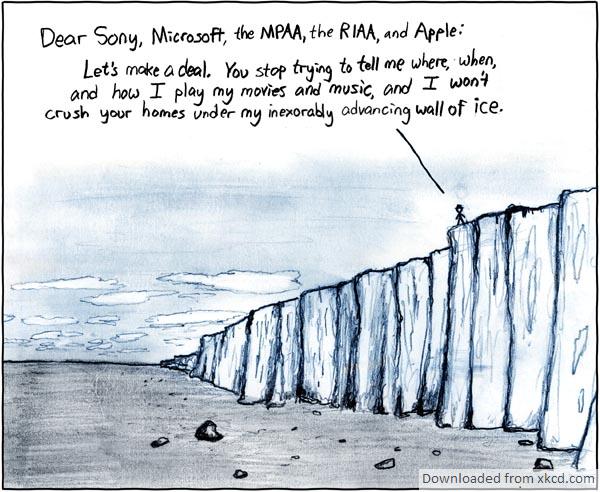 Dear Sony, Microsoft, the MPAA, the RIAA, and Apple:
Let's make a deal. You stop trying to tell me where, when,
and how I play my movies and music, and I won't
crush your homes under my inexorably advancing wall of ice.
Downloaded from xkcd.com